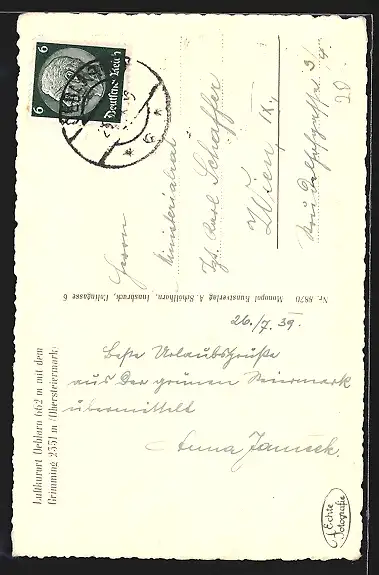 Luftkurort Oeblarn 662 m mit dem
Grimming 2351 m (Obersteiermark)
26./7. 39.
Beste Urlaubsgrüße
aus der grünen Steiermark
übermittelt
Anna Janisek.
Echte
Fotografie
Nr. 8870 Monopol Kunstverlag A. Schollhorn, Innsbruck, Colingasse 6
6
6
Deutsches Reich
Herrn
Ministerialrat
Karl Schaffer
Wien, IX.,